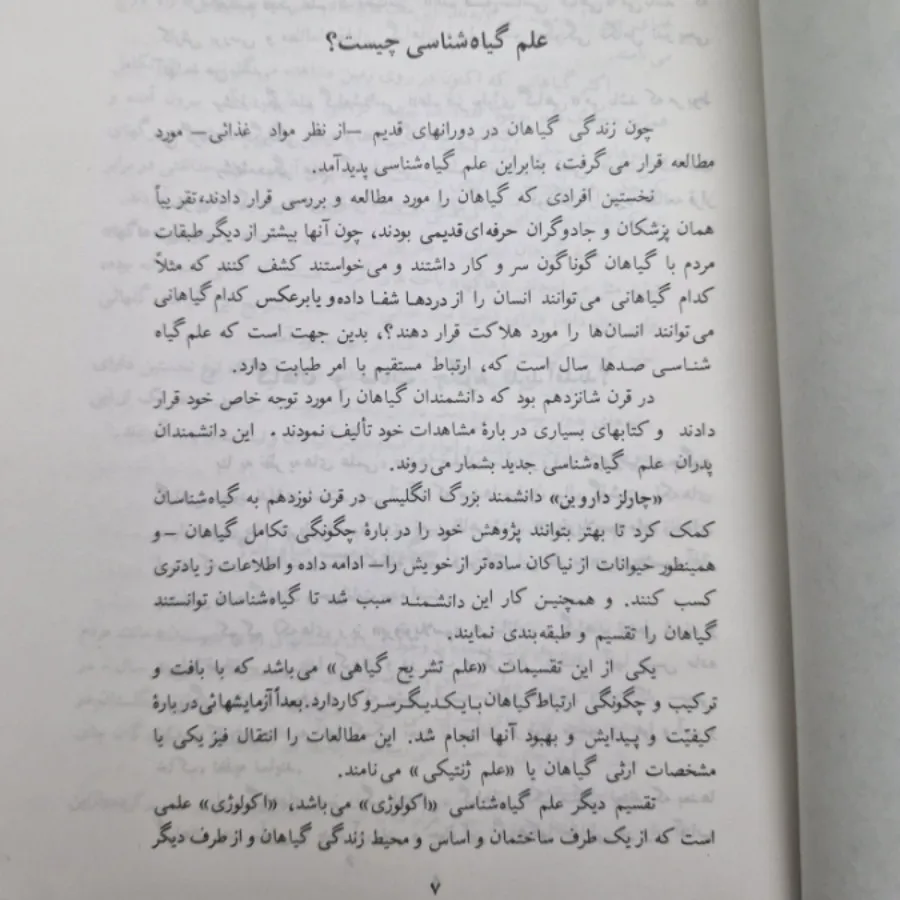 علم گیاه‌شناسی چیست؟
چون زندگی گیاهان در دورانهای قدیم –از نظر مواد غذائی– مورد
مطالعه قرار می‌گرفت، بنابراین علم گیاه‌شناسی پدیدآمد.
نخستین افرادی که گیاهان را مورد مطالعه و بررسی قرار دادند، تقریباً
همان پزشکان و جادوگران حرفه‌ای قدیمی بودند، چون آنها بیشتر از دیگر طبقات
مردم با گیاهان گوناگون سر و کار داشتند و می‌خواستند کشف کنند که مثلاً
کدام گیاهانی می‌توانند انسان را از دردها شفا داده و یا برعکس کدام گیاهانی
می‌توانند انسان‌ها را مورد هلاکت قرار دهند؟، بدین جهت است که علم گیاه
شناسی صدها سال است که، ارتباط مستقیم با امر طبابت دارد.
در قرن شانزدهم بود که دانشمندان گیاهان را مورد توجه خاص خود قرار
دادند و کتابهای بسیاری در بارهٔ مشاهدات خود تألیف نمودند. این دانشمندان
پدران علم گیاه‌شناسی جدید بشمار می‌روند.
«چارلز داروین» دانشمند بزرگ انگلیسی در قرن نوزدهم به گیاه‌شناسان
کمک کرد تا بهتر بتوانند پژوهش خود را در بارهٔ چگونگی تکامل گیاهان –و
همینطور حیوانات از نیاکان ساده‌تر از خویش را– ادامه داده و اطلاعات زیادتری
کسب کنند. و همچنین کار این دانشمند سبب شد تا گیاه‌شناسان توانستند
گیاهان را تقسیم و طبقه‌بندی نمایند.
یکی از این تقسیمات «علم تشریح گیاهی» می‌باشد که با بافت و
ترکیب و چگونگی ارتباط گیاهان با یکدیگر سر و کار دارد. بعداً آزمایشهائی در بارهٔ
کیفیّت و پیدایش و بهبود آنها انجام شد. این مطالعات را انتقال فیزیکی یا
مشخصات ارثی گیاهان یا «علم ژنتیکی» می‌نامند.
تقسیم دیگر علم گیاه‌شناسی «اکولوژی» می‌باشد، «اکولوژی» علمی
است که از یک طرف ساختمان و اساس و محیط زندگی گیاهان و از طرف دیگر
۷